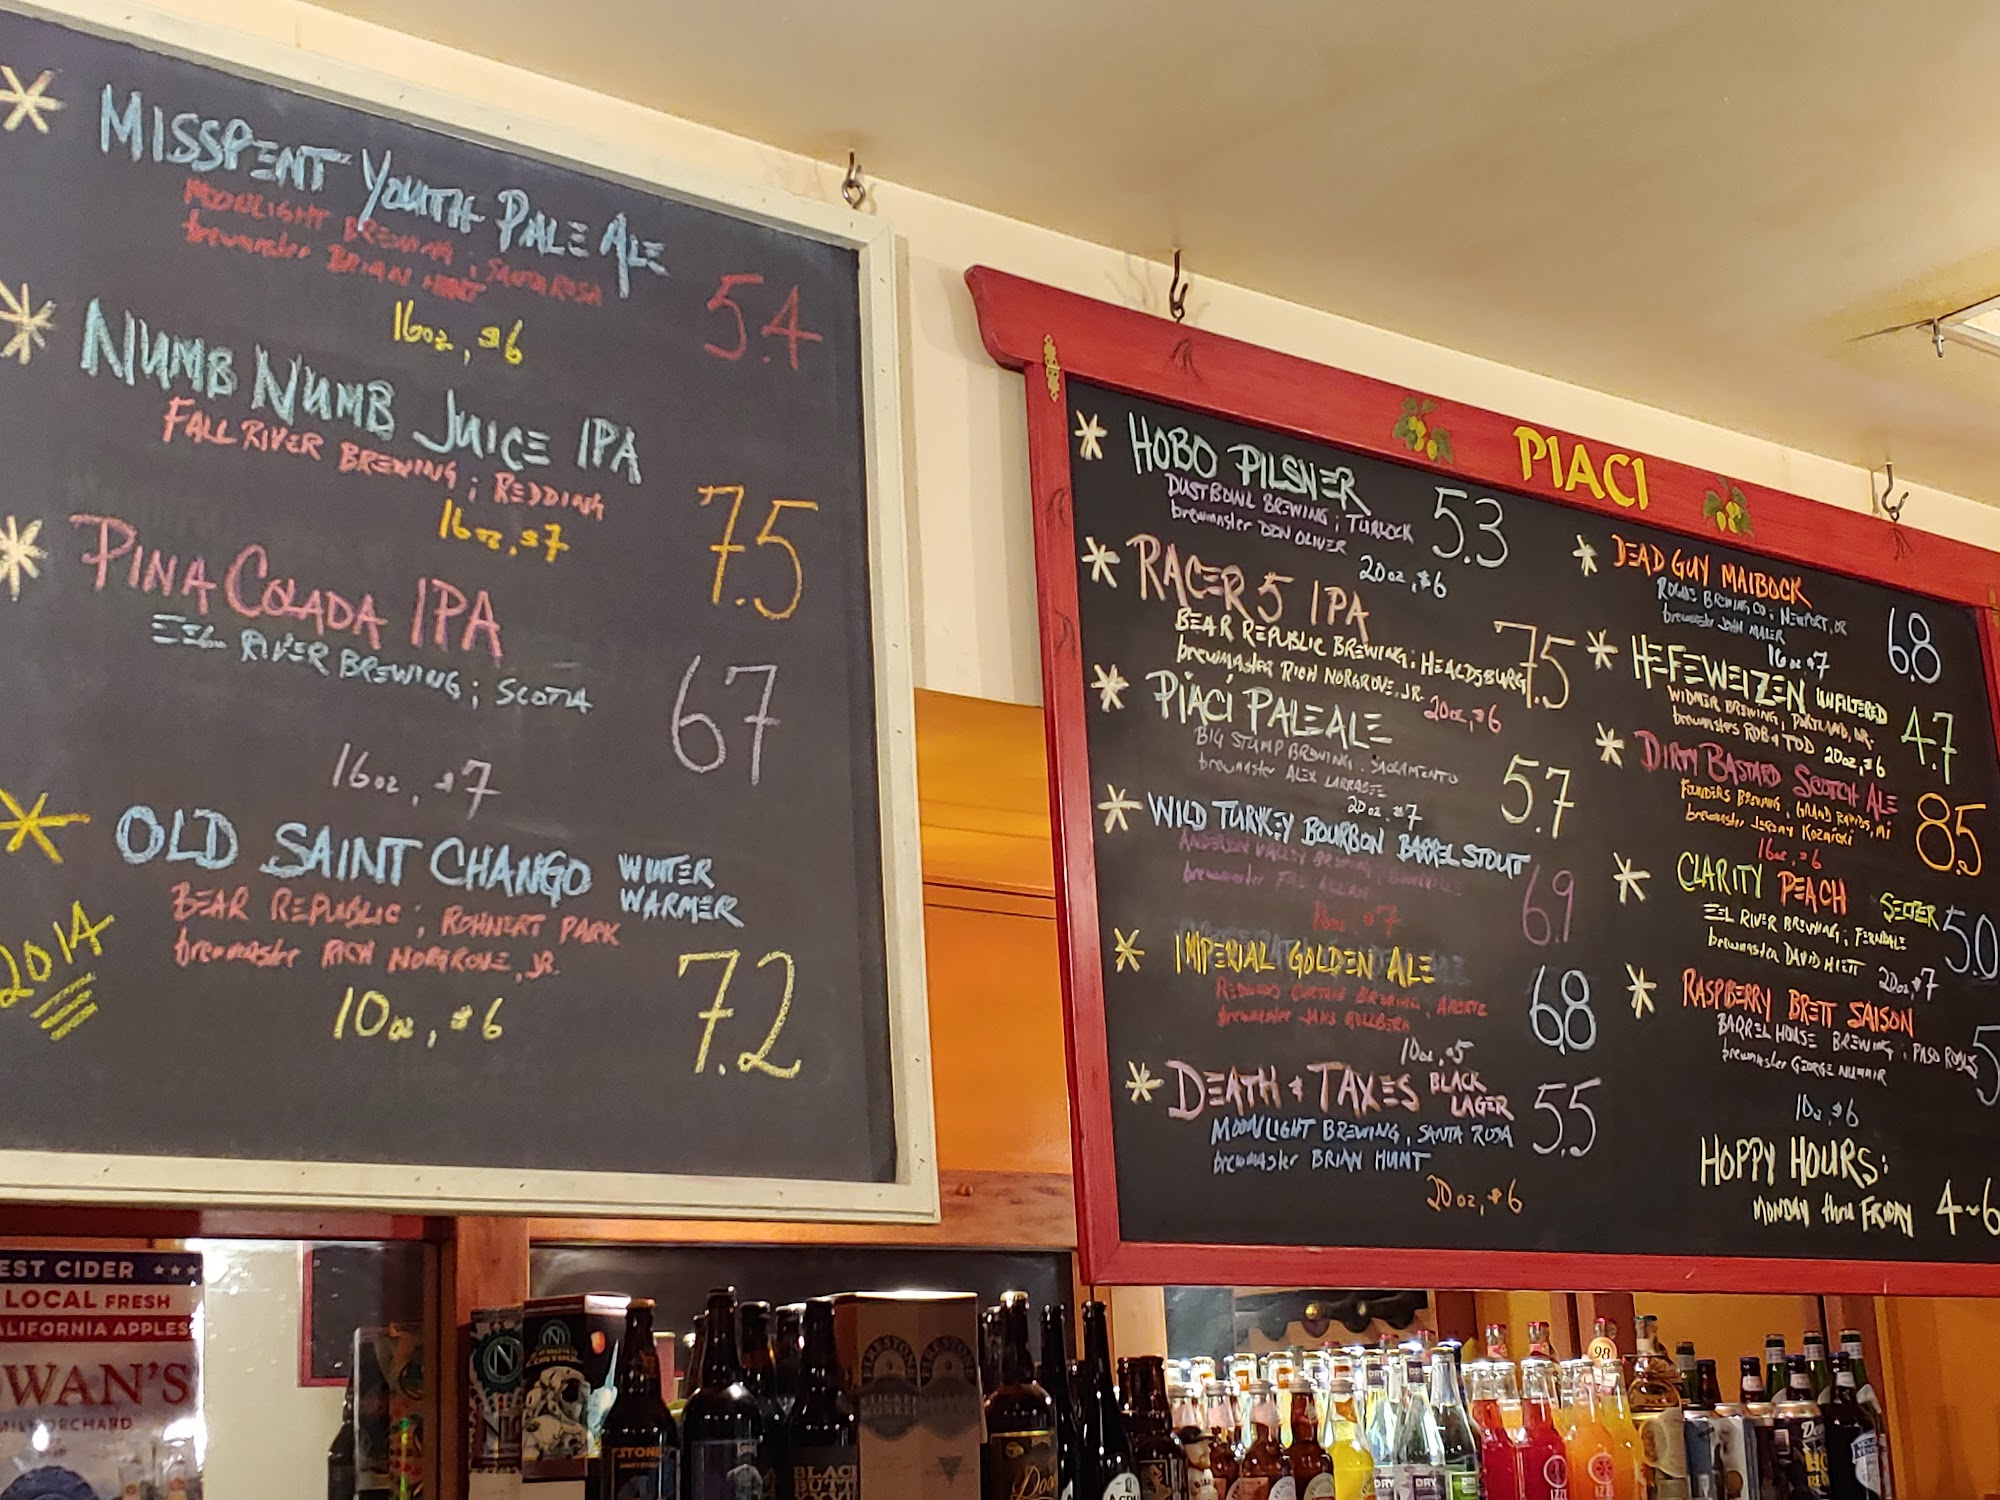 MISSPENT YOUTH PALE ALE
MOONLIGHT BREWING; SANTA ROSA
brewmaster BRIAN HUNT
5.4
16oz, $6
NUMB NUMB JUICE IPA
FALL RIVER BREWING; REDDING
16oz, $7
7.5
PINA COLADA IPA
EEL RIVER BREWING; SCOTIA
67
16oz, $7
OLD SAINT CHANGO WINTER WARMER
BEAR REPUBLIC; ROHNERT PARK
brewmaster RICH NORGROVE, JR.
2014
10oz, $6
7.2
PIACI
HOBO PILSNER
DUSTBOWL BREWING; TURLOCK
brewmaster DON OLIVER
5.3
20oz, $6
RACER 5 IPA
BEAR REPUBLIC BREWING; HEALDSBURG
brewmaster RICH NORGROVE, JR.
7.5
20oz, $6
PIACI PALE ALE
BIG STUMP BREWING, SACRAMENTO
brewmaster ALEX LARRABEE
5.7
20oz, $7
WILD TURKEY BOURBON BARREL STOUT
ANDERSON VALLEY BREWING,
brewmaster FAL ALLEN
6.9
16oz, $7
IMPERIAL GOLDEN ALE
REDWOOD CURTAIN BREWING, ARCATA
brewmaster
6.8
10oz, $5
DEATH & TAXES BLACK LAGER
MOONLIGHT BREWING, SANTA ROSA
brewmaster BRIAN HUNT
5.5
20oz, $6
DEAD GUY MAIBOCK
ROGUE BREWING CO; NEWPORT, OR
brewmaster JOHN MAIER
6.8
16oz $7
HEFEWEIZEN UNFILTERED
WIDMER BREWING, PORTLAND, OR.
brewmasters ROB & TOD 20oz, $6
4.7
DIRTY BASTARD SCOTCH ALE
FOUNDERS BREWING, GRAND RAPIDS, MI
brewmaster JEREMY KOZMICKI
8.5
16oz, $6
CLARITY PEACH SELTER
EEL RIVER BREWING; FERNDALE
brewmaster DAVID HIETT
5.0
20oz, $7
RASPBERRY BRETT SAISON
BARREL HOUSE BREWING; PASO ROBLES
brewmaster GEORGE
5
10oz, $6
HOPPY HOURS:
MONDAY thru FRIDAY 4~6
EST CIDER
LOCAL FRESH
ALIFORNIA APPLES
WAN'S
MILY ORCHARD
98
DRY
DRY
DRY